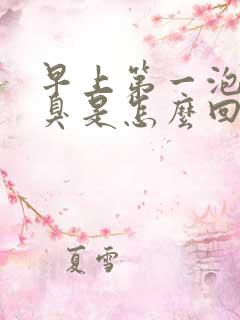 早上第一泡
臭是怎麼回
夏雪